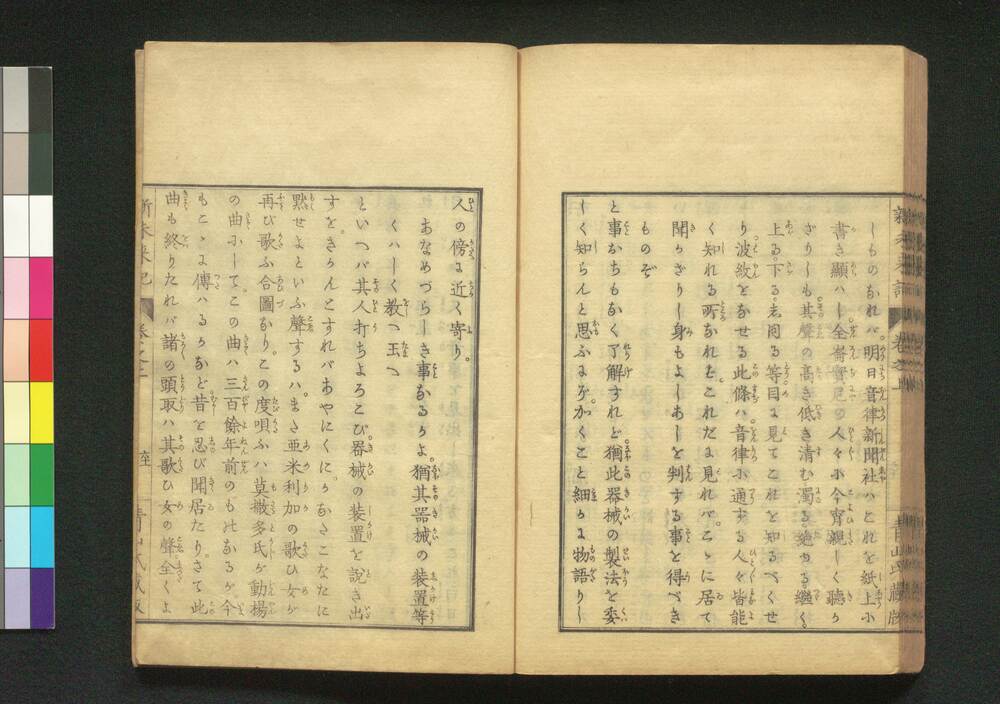 しものなれバ明日音律新聞社ハこれを紙上に
書き顯ハし全
の人々に今宵親しく聽か
ざりしも其聲の高き低き清む濁る絶ゆる繼く
上る下る
等目に見てこれを知るべくせ
り波紋をなせる此條ハ音律に通する人々皆能
く知れる所なれどこれだに見れバこゝに居て
聞かざりし身もよしあしを判する事を得べき
ものぞ
と事おちもなく了解すれど猶此器械の製法を委
しく知らんと思ふにぞかくこと細かに物語りし
人の傍に近く寄り。
あなめづらしき事なるかよ。猶其器械の装置等
くハしく教へ玉へ
といへバ其人打ちよろこび器械の装置を説き出
すをきかんとすれバあやにくにかなたこなたに
黙せよといふ聲するハ。まさ亜米利加の歌ひ女が
再び歌ふ合圖なり。この度唄ふハ莫撒多氏が動楊
の曲にして。この曲ハ三百餘年前のものなるが今
もこゝに傳ハるかなど昔を忍び聞居たり。さて此
曲も終りたれバ諸の頭取ハ其歌ひ女の聲全くよ
新未来記
巻之上
青山氏蔵版